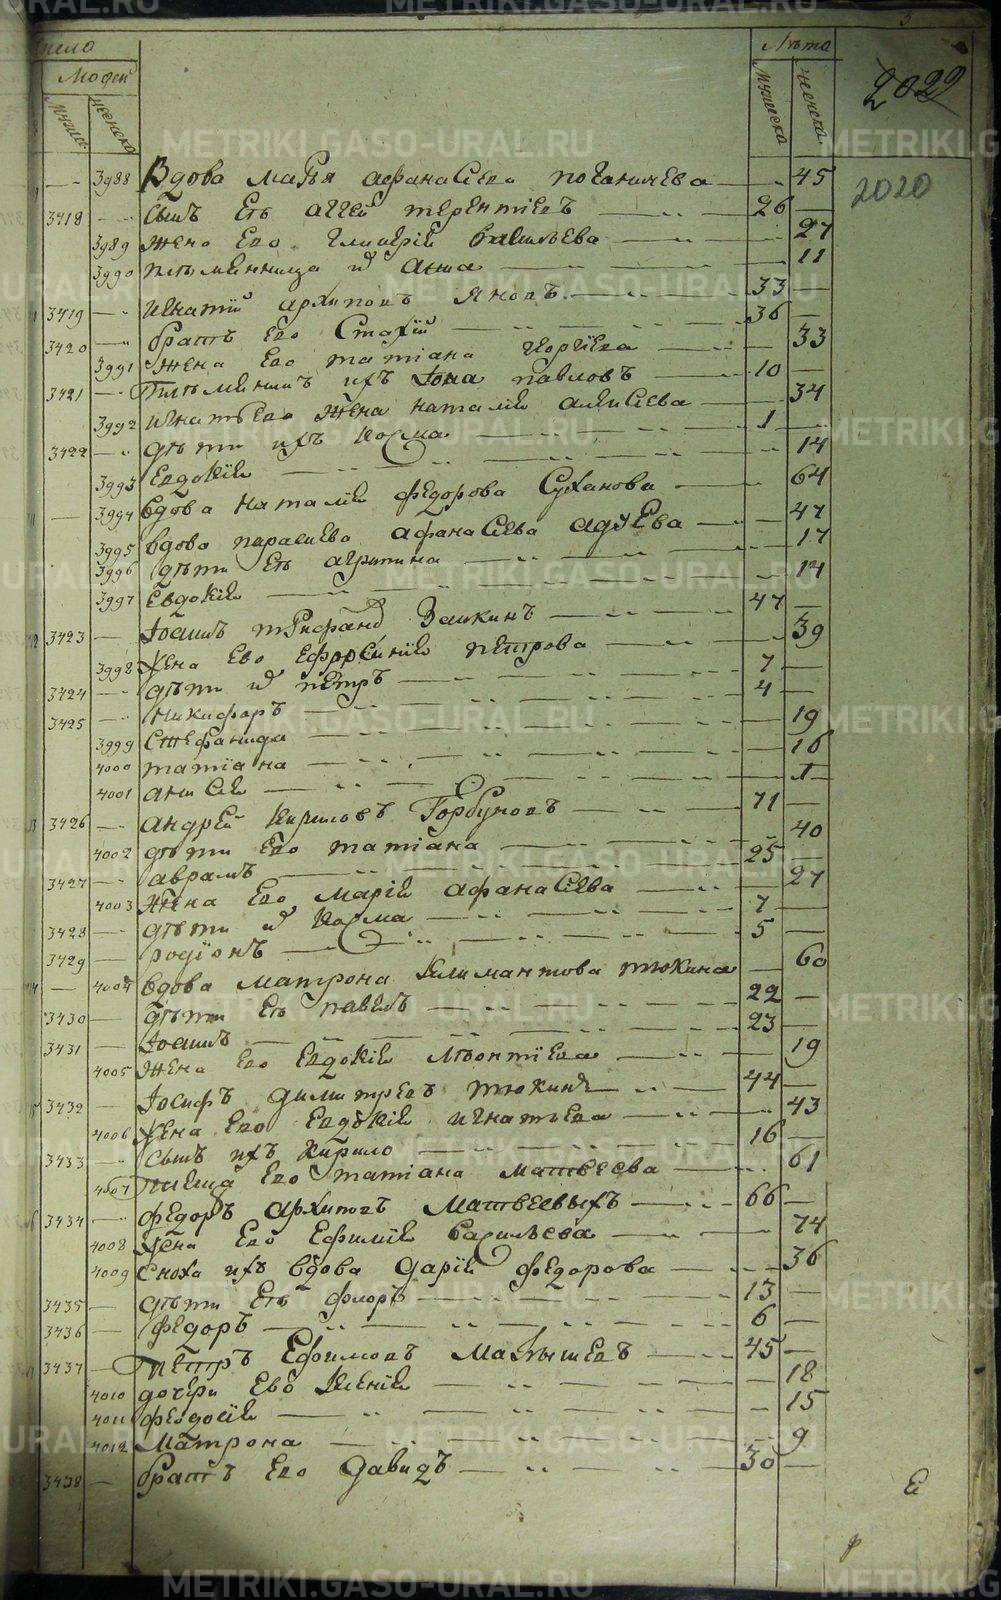 METRIKI.GASO-URAL.RU
5
Число
Людей
Лѣта
Мужеска
женска
Мужеска
женска
2022
2020
3988 Вдова марья афанасьева 45
3418 сынъ Еть аггей терентьевъ 26
3989 жена Ево гликерия васильева 27
3990 племянница и анна 11
3419 игнатий архиповъ яновъ 33
3420 братъ Ево 36
3991 жена Ево татиана 33
3421 племянникъ ихъ Иона павловъ 10
3992 игнатьева жена наталия алексиева 34
3422 дѣти ихъ козма 1
3993 Евдокия 14
3994 вдова наталия федорова Суханова 64
3995 вдова параскева афанасьева адуева 47
3996 дѣти Еть агрипина 17
3997 Евдокия 14
3423 Иоаннъ 47
3998 жена Ево Ефросиния петрова 39
3424 дѣти и петръ 7
3425 Никифоръ 4
3999 Стефанида 19
4000 татиана 16
4001 1
3426 андрей кириловъ Горбуновъ 71
4002 дѣти Ево татиана 40
3427 аврамъ 25
4003 жена Ево мария афанасьева 27
3428 дѣти и козма 7
3429 родионъ 5
4004 вдова матрона климантова тюкина 60
3430 дѣти Еть павелъ 22
3431 Иоаннъ 23
4005 жена Ево Евдокия Леонтиева 19
3432 Иосифъ димитревъ тюкинъ 44
4006 жена Ево Евдокия игнатьева 43
3433 сынъ ихъ Кирило 16
4007 Ево татиана матвеева 61
3434 федоръ архиповъ матвеевыхъ 66
4008 жена Ево Ефимия васильева 74
4009 сноха ихъ вдова дария федорова 36
3435 дѣти Еть флоръ 13
3436 федоръ 6
3437 петръ Ефимовъ малышевъ 45
4010 дочери Ево Ксения 18
4011 феодосия 15
4012 матрона 9
3438 братъ Ево давидъ 30